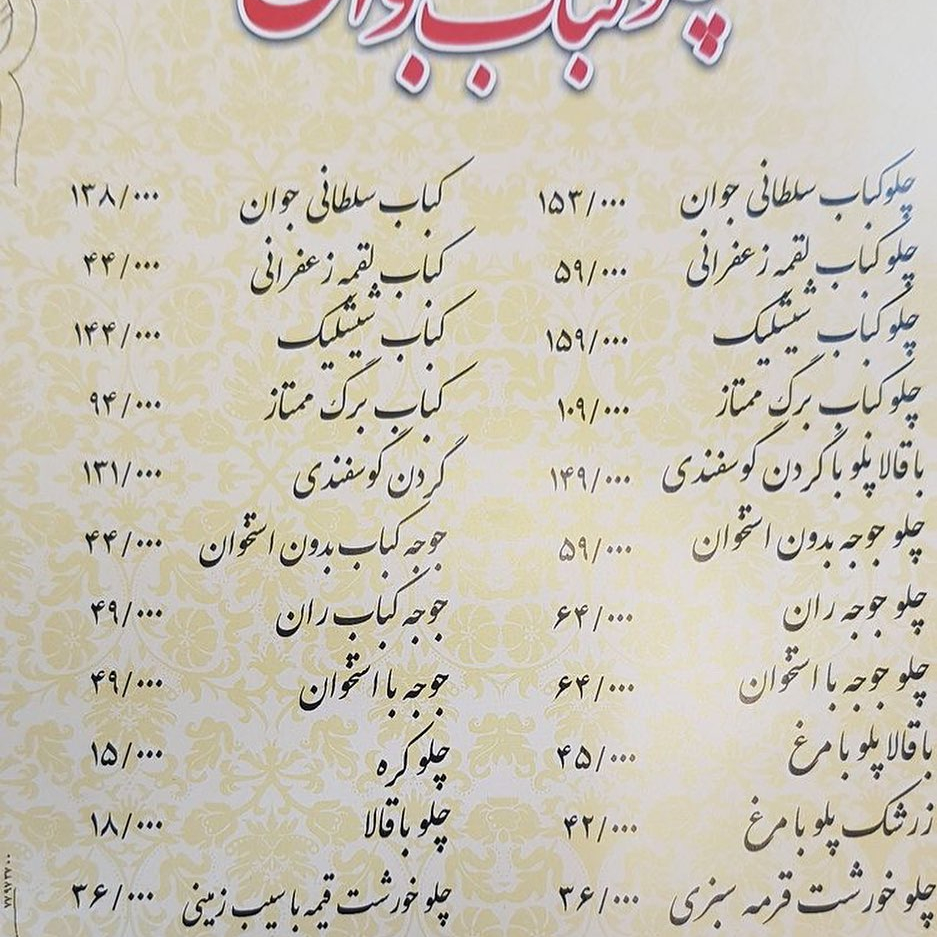 چلوکباب جوان
چلوکباب سلطانی جوان ۱۵۳/۰۰۰ کباب سلطانی جوان ۱۳۸/۰۰۰
چلوکباب لقمه زعفرانی ۵۹/۰۰۰ کباب لقمه زعفرانی ۴۴/۰۰۰
چلوکباب شیشلیک ۱۵۹/۰۰۰ کباب شیشلیک ۱۴۴/۰۰۰
چلوکباب برگ ممتاز ۱۰۹/۰۰۰ کباب برگ ممتاز ۹۴/۰۰۰
باقالا پلو با گردن گوسفندی ۱۴۹/۰۰۰ گردن گوسفندی ۱۳۱/۰۰۰
چلو جوجه بدون استخوان ۵۹/۰۰۰ جوجه کباب بدون استخوان ۴۴/۰۰۰
چلو جوجه ران ۶۴/۰۰۰ جوجه کباب ران ۴۹/۰۰۰
چلو جوجه با استخوان ۶۴/۰۰۰ جوجه با استخوان ۴۹/۰۰۰
باقالا پلو با مرغ ۴۵/۰۰۰ چلو کره ۱۵/۰۰۰
زرشک پلو با مرغ ۴۲/۰۰۰ چلو باقالا ۱۸/۰۰۰
چلو خورشت قرمه سبزی ۳۶/۰۰۰ چلو خورشت قیمه با سیب زمینی ۳۶/۰۰۰